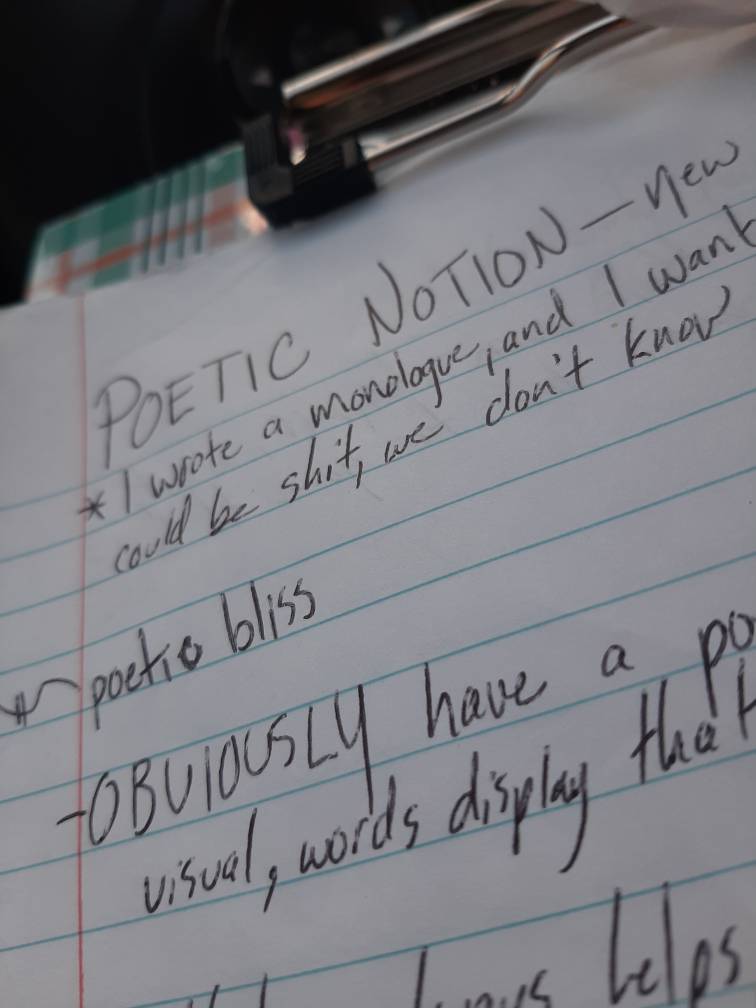 POETIC NOTION — new
* I wrote a monologue, and I want
could be shit, we don't know
poetic bliss
- OBVIOUSLY have a po
visual, words display that
helps